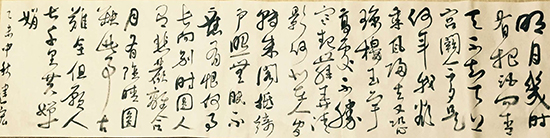 明月幾時
有把酒問青
天不知天上
宮闕今夕是
何年我欲
乘風歸去又恐
瓊樓玉宇
高處不勝
寒起舞弄清
影何似在人間
轉朱閣低綺
戶照無眠不
應有恨何事
長向別時圓人
有悲歡離合
月有陰晴圓
缺此事古
難全但願人
長久千里共嬋
娟
中秋